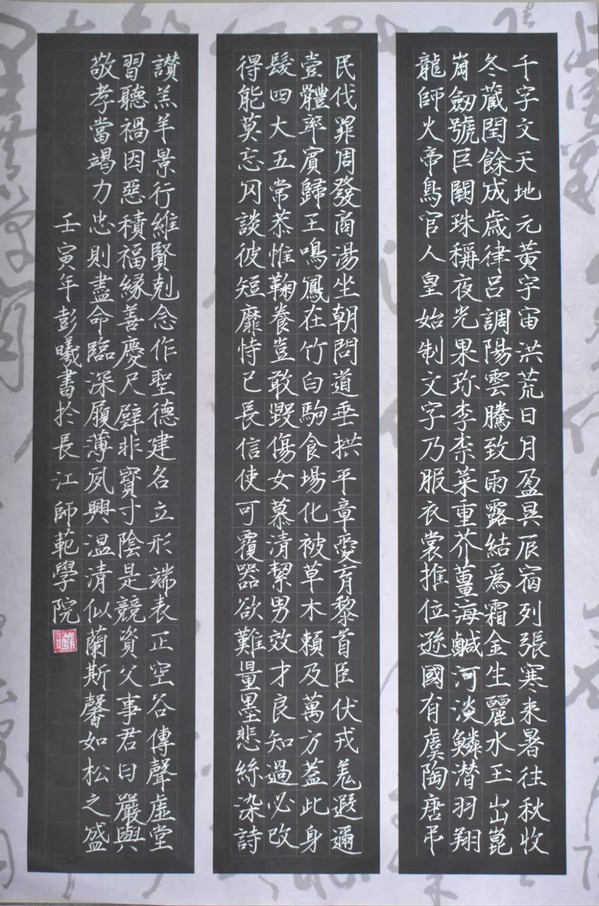 千字文天地元黃宇宙洪荒日月盈昃辰宿列張寒来暑往秋收
冬藏閏餘成歲律吕調陽雲騰致雨露結爲霜金生麗水玉出崑
崗劔號巨闕珠稱夜光果珎李柰菜重芥薑海鹹河淡鱗潜羽翔
龍師火帝鳥官人皇始制文字乃服衣裳推位遜國有虞陶唐弔
民伐罪周發商湯坐朝問道垂拱平章愛育黎首臣伏戎羌遐邇
壹體率賓歸王鳴鳳在竹白駒食場化被草木賴及萬方蓋此身
髮四大五常恭惟鞠養豈敢毀傷女慕清絜男效才良知過必改
得能莫忘罔談彼短靡恃己長信使可覆器欲難量墨悲絲染詩
讃羔羊景行維賢剋念作聖德建名立形端表正空谷傳聲虛堂
習聽禍因惡積福緣善慶尺璧非寳寸陰是競資父事君曰嚴與
敬孝當竭力忠則盡命臨深履薄夙興温清似蘭斯馨如松之盛
壬寅年彭曦書於長江師範學院